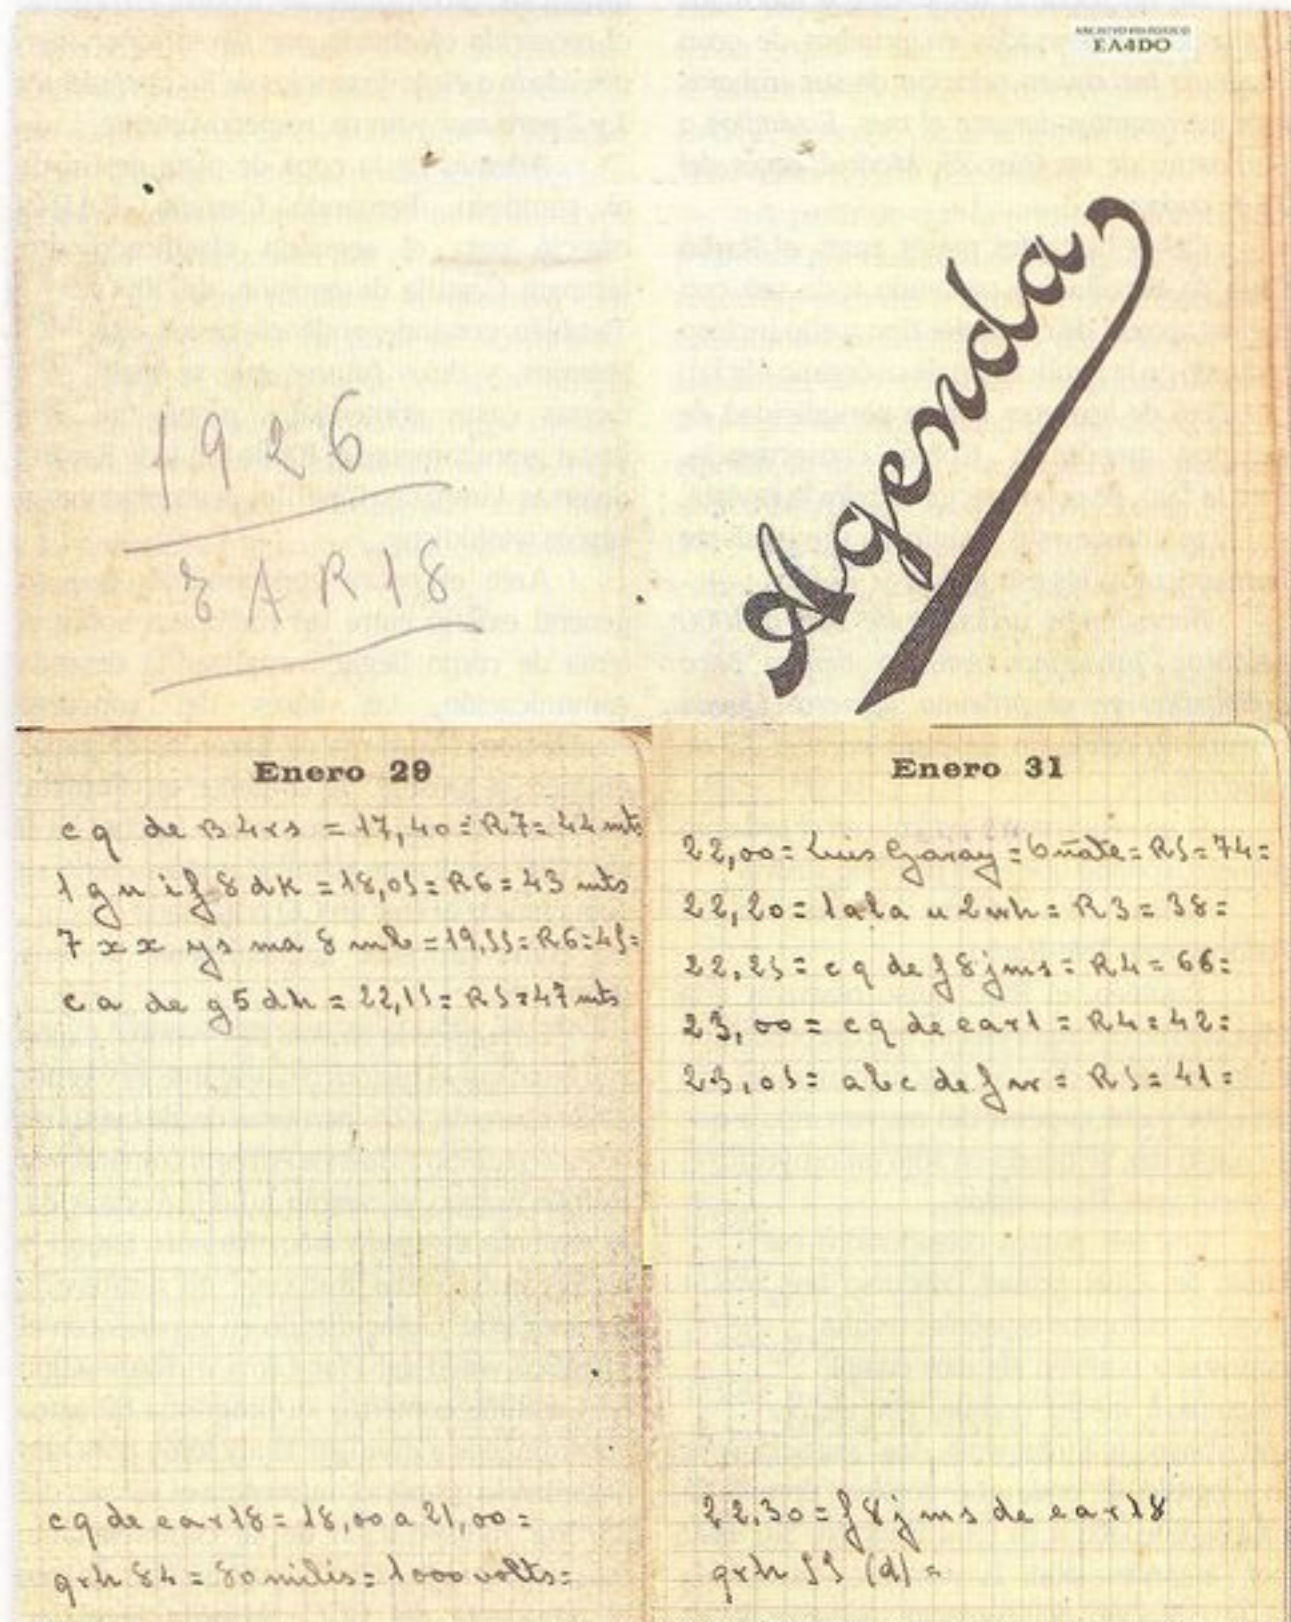 EA4DO
Agenda
1926
EAR18
Enero 29
cq de B4rs = 17,40 = R7 = 44 mts
1 gn if 8 dk = 18,05 = R6 = 43 mts
7 xx ys ma 8 mb = 19,55 = R6 = 45 =
ca de g5dh = 22,15 = R5 = 47 mts
cq de ear18 = 18,00 a 21,00 =
grh 84 = 80 milis = 1000 volts =
Enero 31
22,00 = Luis Garay = Oñate = R5 = 74 =
22,20 = 1ala u 2wh = R3 = 38 =
22,25 = cq de f8jms = R4 = 66 =
23,00 = cq de ear1 = R4 = 42 =
23,05 = abc de fw = R5 = 41 =
22,30 = f8jms de ear18
grh 55 (d) =